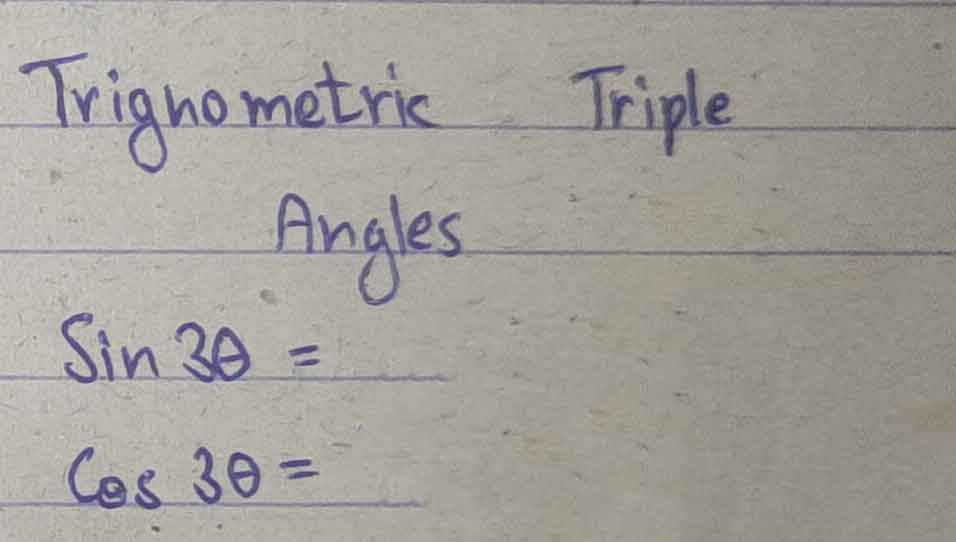 Trignometric Triple
Angles
Sin 3θ =
Cos 3θ =